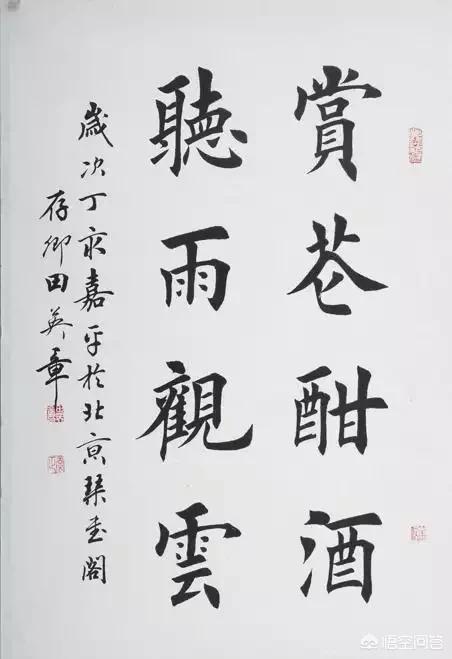 賞花酣酒
聽雨觀雲
歲次丁亥嘉平於北京琹書閣
存卿田英章
悟空问答